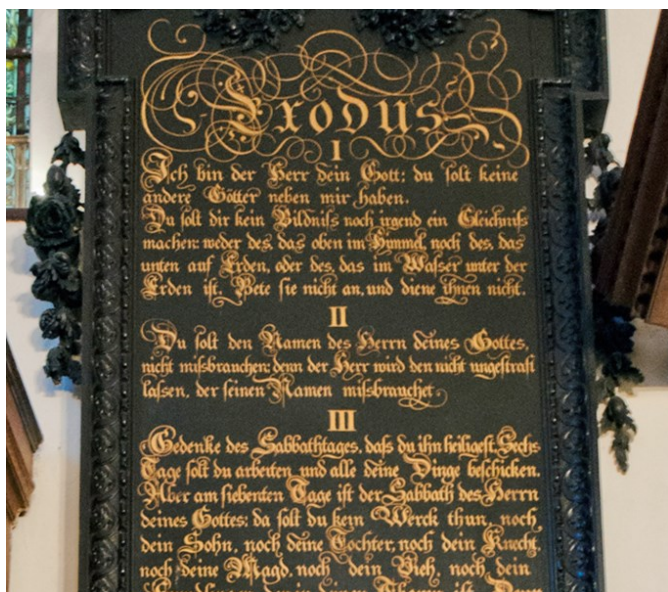 Exodus
I
Ich bin der Herr dein Gott: du solt keine
andere Götter neben mir haben.
Du solt dir kein Bildniß noch irgend ein Gleichniß
machen: weder des, das oben im Himmel, noch des, das
unten auf Erden, oder des, das im Wasser unter der
Erden ist. Bete sie nicht an, und diene ihnen nicht.
II
Du solt den Namen des Herrn deines Gottes,
nicht mißbrauchen: denn der Herr wird den nicht ungestraft
laßen, der seinen Namen mißbrauchet.
III
Gedenke des Sabbathtages, daß du ihn heiligest. Sechs
Tage solt du arbeiten und alle deine Dinge beschicken.
Aber am siebenten Tage ist der Sabbath des Herrn
deines Gottes: da solt du kein Werck thun, noch
dein Sohn, noch deine Tochter, noch dein Knecht,
noch deine Magd, noch dein Vieh, noch dein